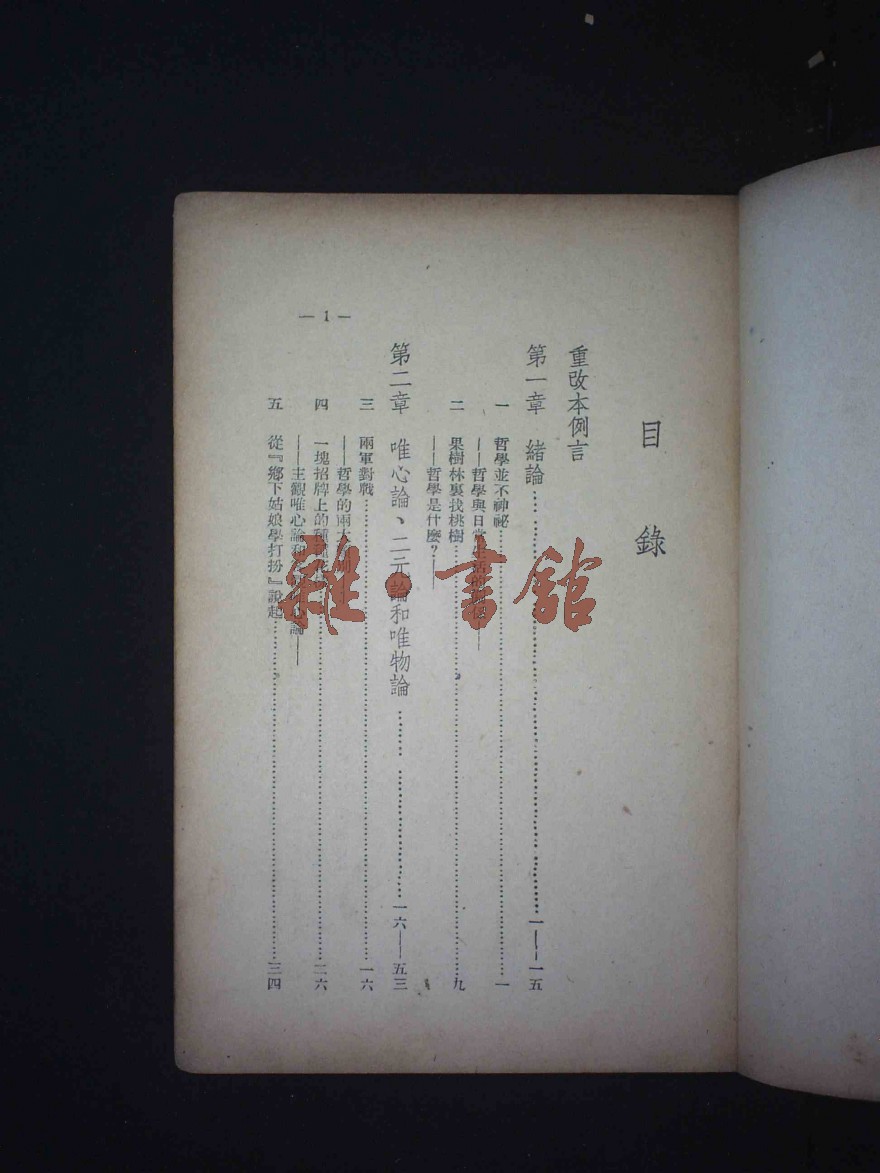 目錄
重改本例言
第一章 緒論…………一——一五
一 哲學並不神祕…………一
——哲學與日常生活的
二 果樹林裏找桃樹…………九
——哲學是什麼?——
第二章 唯心論、二元論和唯物論…………一六——五三
三 兩軍對戰…………一六
——哲學的兩大
四 一塊招牌上的種種…………二六
——主觀唯心論和 論——
五 從『鄉下姑娘學打扮』說起…………三四
— 1 —
雜·書館